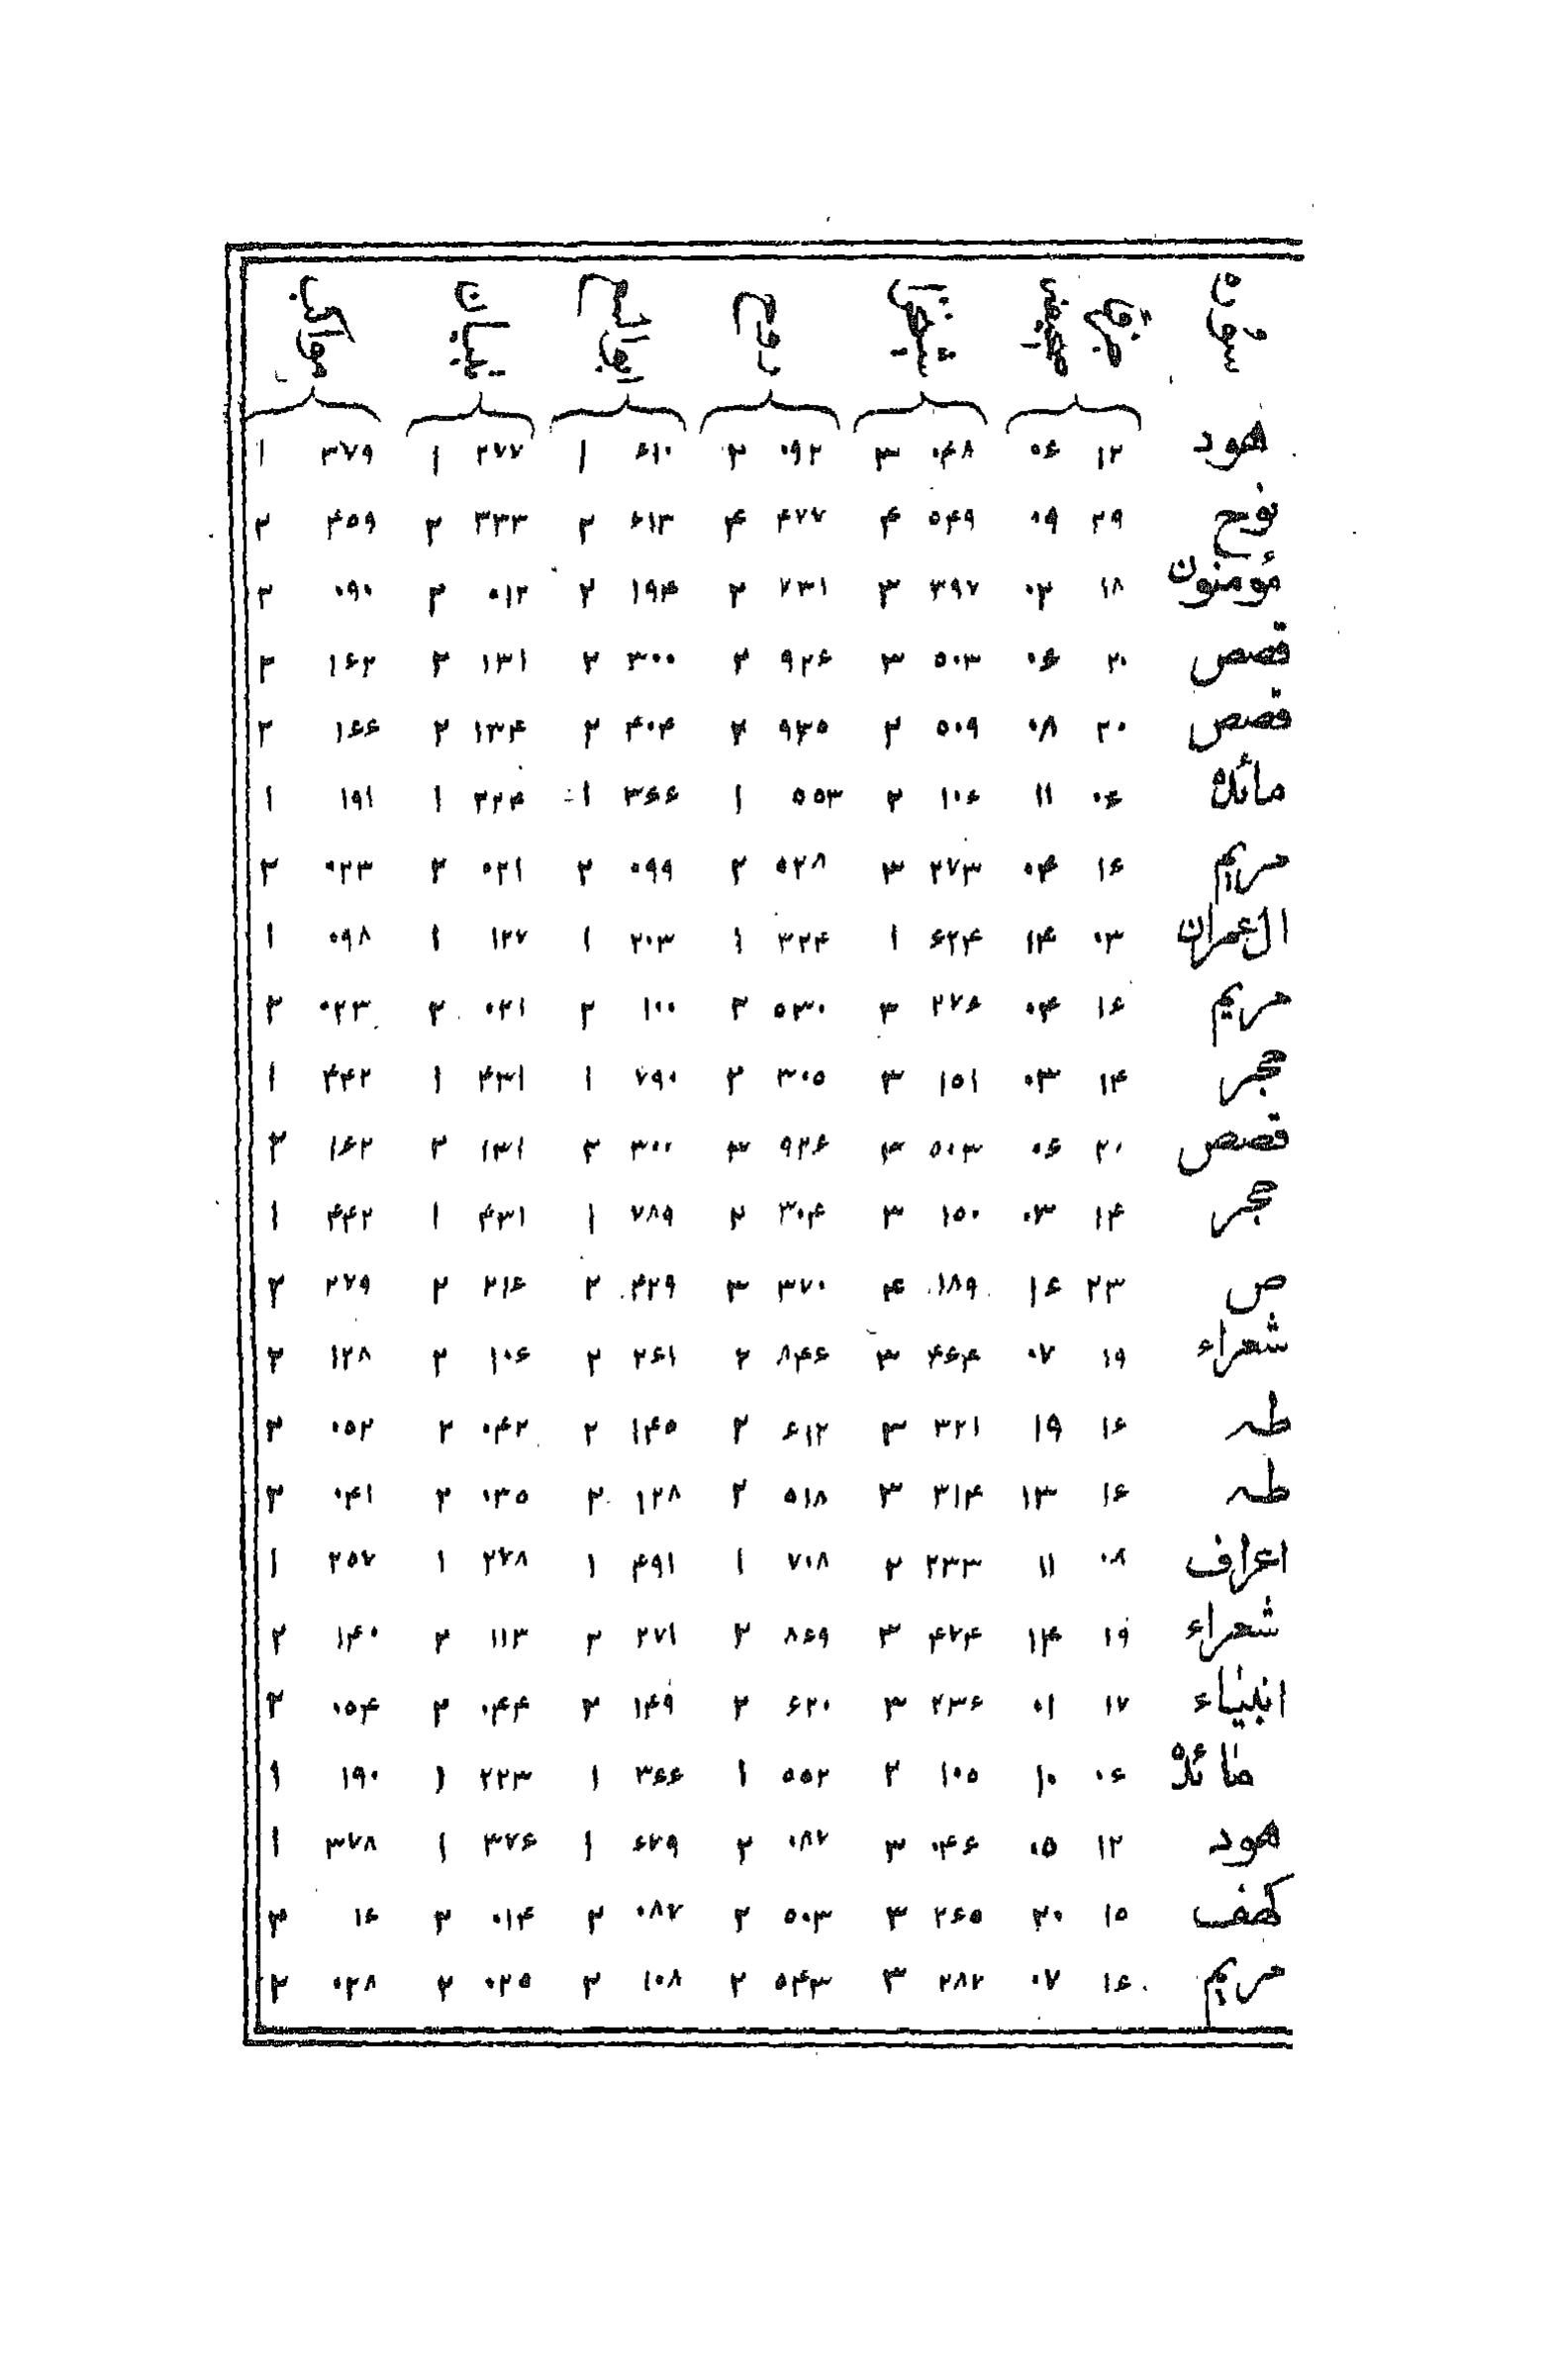 سوره صفحه روح تبیان
هود ۱۲ ۰۶ ۰۴۸ ۳ ۰۹۲ ۲ ۶۱۰ ۱ ۲۷۷ ۱ ۳۷۹ ۱
نوح ۲۹ ۰۹ ۵۴۹ ۴ ۴۷۷ ۴ ۶۱۳ ۲ ۳۳۳ ۲ ۴۵۹ ۲
مؤمنون ۱۸ ۰۲ ۳۹۷ ۳ ۷۳۱ ۲ ۱۹۴ ۲ ۰۱۲ ۲ ۰۹۰ ۲
قصص ۲۰ ۰۶ ۵۰۳ ۳ ۹۲۶ ۲ ۳۰۰ ۲ ۱۳۱ ۲ ۱۶۲ ۲
قصص ۲۰ ۰۸ ۵۰۹ ۲ ۹۳۵ ۲ ۴۰۴ ۲ ۱۳۴ ۲ ۱۶۶ ۲
مائده ۰۶ ۱۱ ۱۰۶ ۲ ۵۵۳ ۱ ۳۶۶ ۱ ۲۲۴ ۱ ۱۹۱ ۱
مریم ۱۶ ۰۴ ۲۷۳ ۳ ۵۲۸ ۲ ۰۹۹ ۲ ۰۲۱ ۲ ۰۲۳ ۲
ال عمران ۰۳ ۱۴ ۶۲۴ ۱ ۳۲۴ ۱ ۲۰۳ ۱ ۱۲۷ ۱ ۰۹۸ ۱
مریم ۱۶ ۰۴ ۲۷۶ ۳ ۵۳۰ ۲ ۱۰۰ ۲ ۰۲۱ ۲ ۰۲۳ ۲
حجر ۱۴ ۰۳ ۱۵۱ ۳ ۳۰۵ ۲ ۷۹۰ ۱ ۴۳۱ ۱ ۴۴۲ ۱
قصص ۲۰ ۰۶ ۵۰۳ ۳ ۹۲۶ ۳ ۳۰۰ ۲ ۱۳۱ ۲ ۱۶۲ ۲
حجر ۱۴ ۰۳ ۱۵۰ ۳ ۳۰۴ ۲ ۷۸۹ ۱ ۴۳۱ ۱ ۴۴۲ ۱
ص ۲۳ ۱۶ ۱۸۹ ۴ ۳۷۰ ۳ ۴۲۹ ۲ ۲۱۶ ۲ ۲۷۹ ۲
شعراء ۱۹ ۰۷ ۴۶۴ ۳ ۸۴۶ ۲ ۲۶۱ ۲ ۱۰۶ ۲ ۱۲۸ ۲
طه ۱۶ ۱۹ ۳۲۱ ۳ ۶۱۲ ۲ ۱۴۵ ۲ ۰۴۲ ۲ ۰۵۲ ۲
طه ۱۶ ۱۳ ۳۱۴ ۳ ۵۱۸ ۲ ۱۲۸ ۲ ۰۳۵ ۲ ۰۴۱ ۲
اعراف ۰۸ ۱۱ ۲۳۳ ۲ ۷۰۸ ۱ ۴۹۱ ۱ ۲۷۸ ۱ ۲۵۷ ۱
شعراء ۱۹ ۱۴ ۴۷۴ ۳ ۸۶۹ ۲ ۲۷۱ ۲ ۱۱۳ ۲ ۱۴۰ ۲
انبیاء ۱۷ ۰۱ ۲۳۶ ۳ ۶۲۰ ۲ ۱۴۹ ۲ ۰۴۴ ۲ ۰۵۴ ۲
مائده ۰۶ ۱۰ ۱۰۵ ۲ ۵۵۲ ۱ ۳۶۶ ۱ ۲۲۳ ۱ ۱۹۰ ۱
هود ۱۲ ۰۵ ۰۴۶ ۳ ۰۸۷ ۲ ۶۷۹ ۱ ۳۷۶ ۱ ۳۷۸ ۱
کهف ۱۵ ۲۰ ۲۶۵ ۳ ۵۰۳ ۲ ۰۸۷ ۲ ۰۱۴ ۲ ۱۶ ۲
مریم ۱۶ ۰۷ ۲۸۲ ۳ ۵۴۳ ۲ ۱۰۸ ۲ ۰۲۵ ۲ ۰۲۸ ۲